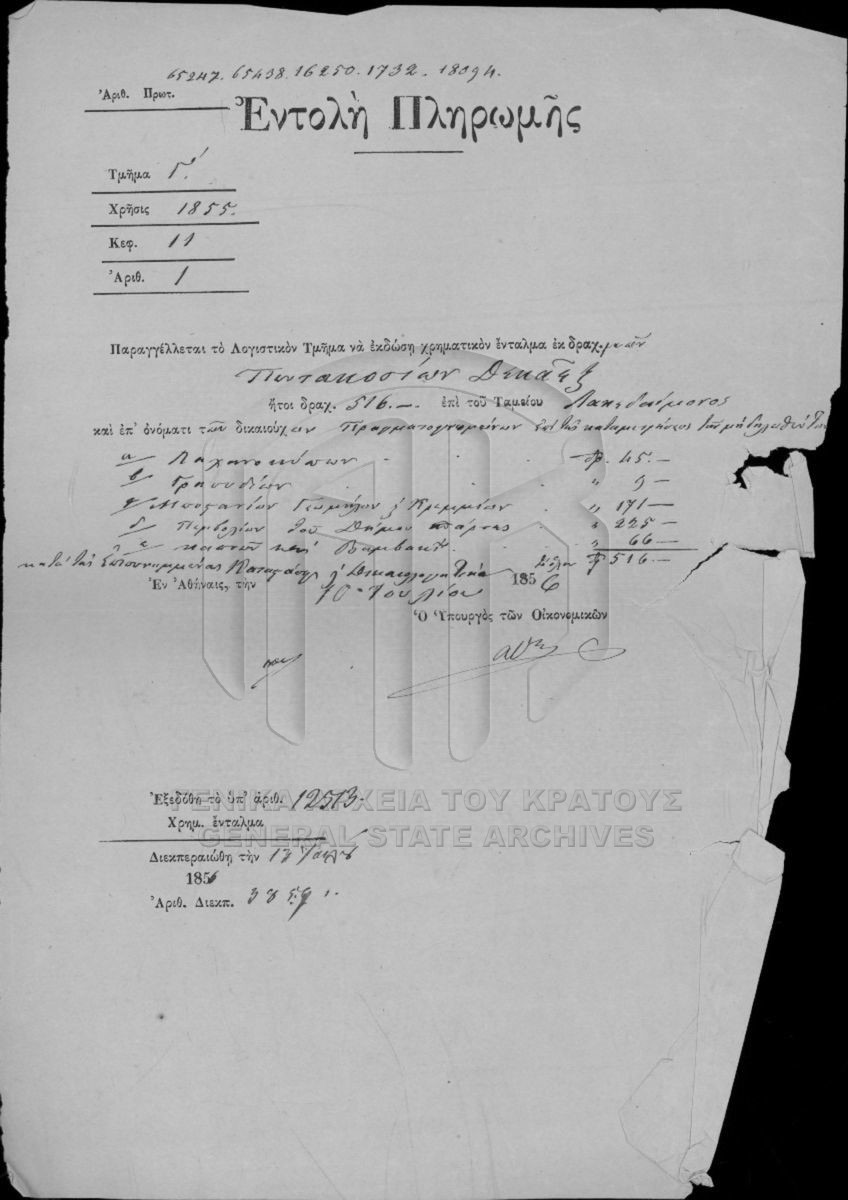 65247. 65438. 16250. 1732. 18094.
Ἀριθ. Πρωτ.
Ἐντολὴ Πληρωμῆς
Τμῆμα Γ΄.
Χρῆσις 1855.
Κεφ. 11
Ἀριθ. 1
Παραγγέλλεται τὸ Λογιστικὸν Τμῆμα νὰ ἐκδώσῃ χρηματικὸν ἔνταλμα ἐκ δραχμῶν
Πεντακοσίων Δεκαέξ
ἤτοι δραχ. 516.— ἐπὶ τοῦ Ταμείου Λακεδαίμονος
καὶ ἐπ' ὀνόματι τῶν δικαιούχων Πραγματογνωμόνων ἐπὶ τῆς καταμετρήσεως τῶν μὴ
α/ Λαχανοκήπων 45.—
β/ " 9 —
γ/ Μποστανίων Γεωμήλων " 171 —
δ/ Περβολίων τοῦ Δήμου Σπάρτης " 225 —
ε/ καὶ " 66 —
κατὰ τὰς ἐπισυνημμένας Δικαιολογητικὰ 516 —
Ἐν Ἀθήναις, τὴν 10 Ἰουλίου 1856
Ὁ Ὑπουργὸς τῶν Οἰκονομικῶν
Ἐξεδόθη τὸ ὑπ' ἀριθ. 12513.
Χρημ. ἔνταλμα
ΓΕΝΙΚΑ ΑΡΧΕΙΑ ΤΟΥ ΚΡΑΤΟΥΣ
GENERAL STATE ARCHIVES
Διεκπεραιώθη τὴν
1856
Ἀριθ. Διεκπ.